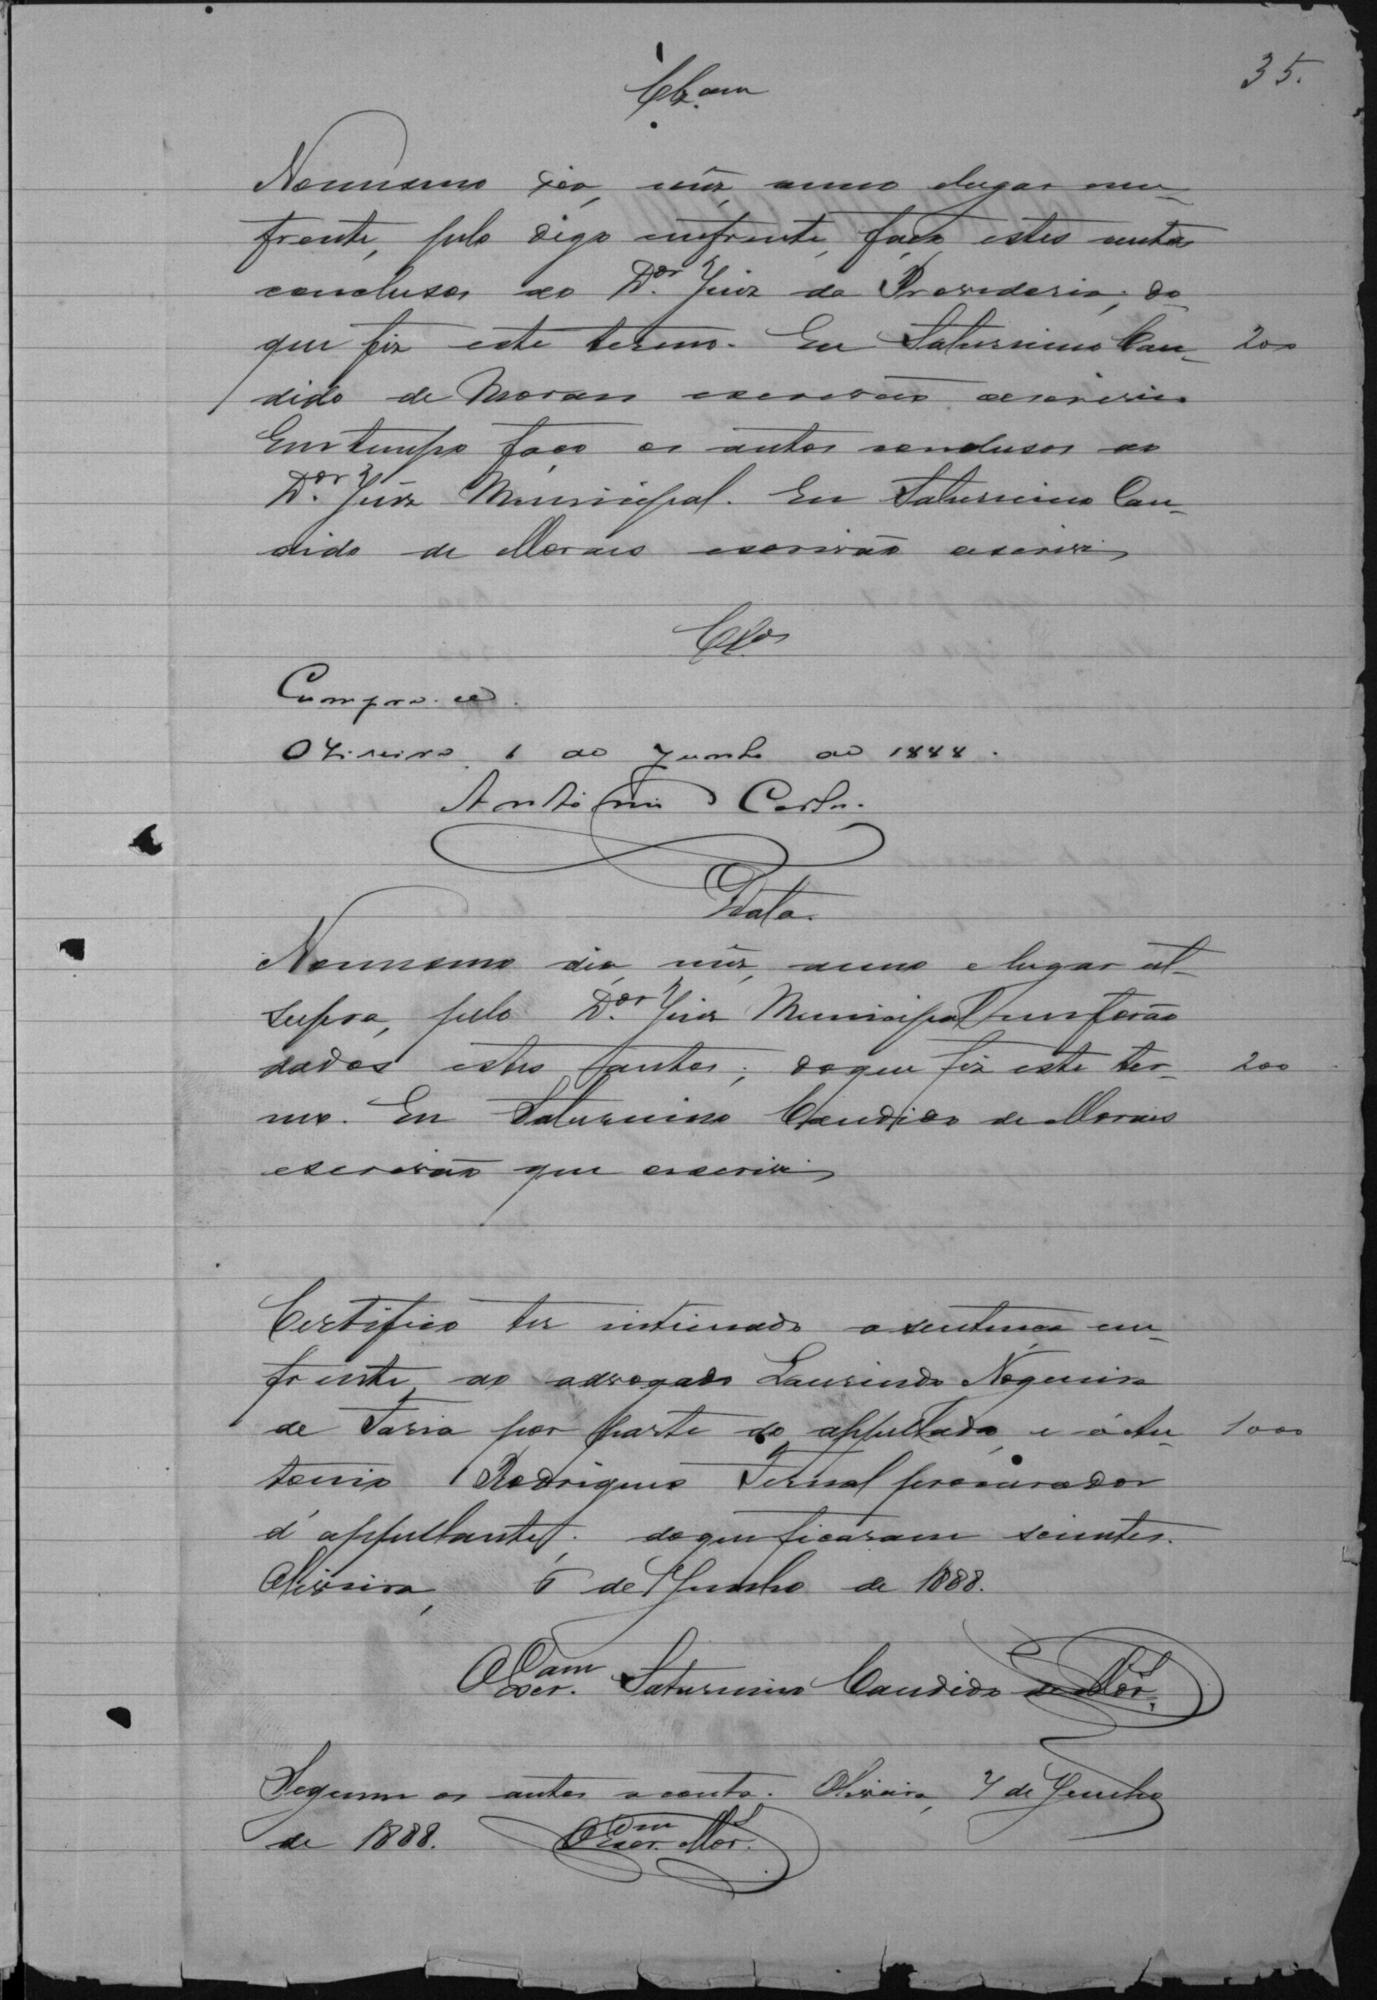 35.
Cl.am
Nomesmo dia, mês, anno elugar em-
frente, pelo digo emfrente, faço estes autos
conclusos ao D.or Juiz da Provedoria; do
que fiz este termo. Eu Saturnino Can- 200
dido de Moraes escrivão escrevi
Em tempo faço os autos conclusos ao
D.or Juiz Municipal. Eu Saturnino Can-
dido de Moraes escrivão escrevi
Cl.os
Cumpra-se.
Oliveira, 1 de Junho de 1888.
Antonio Carlos.
Data.
Nomesmo dia, mês, anno e lugar ut-
supra, pelo D.or Juiz Municipal me forão
dados estes autos; doque fiz este ter- 200
mo. Eu Saturnino Candido de Moraes
escrivão que escrevi
Certifico ter intimado a sentença em-
frente, ao advogado Laurindo Nogueira
de Faria por parte do appellado, e á An- 1000
tonio Rodrigues Fernal procurador
d'appellante; doque ficaram scientes.
Oliveira, 5 de Junho de 1888.
O Escr.am Saturnino Candido de Mor.
Seguem os autos a conta. Oliveira, 7 de Junho
de 1888. O Escr. Mor.